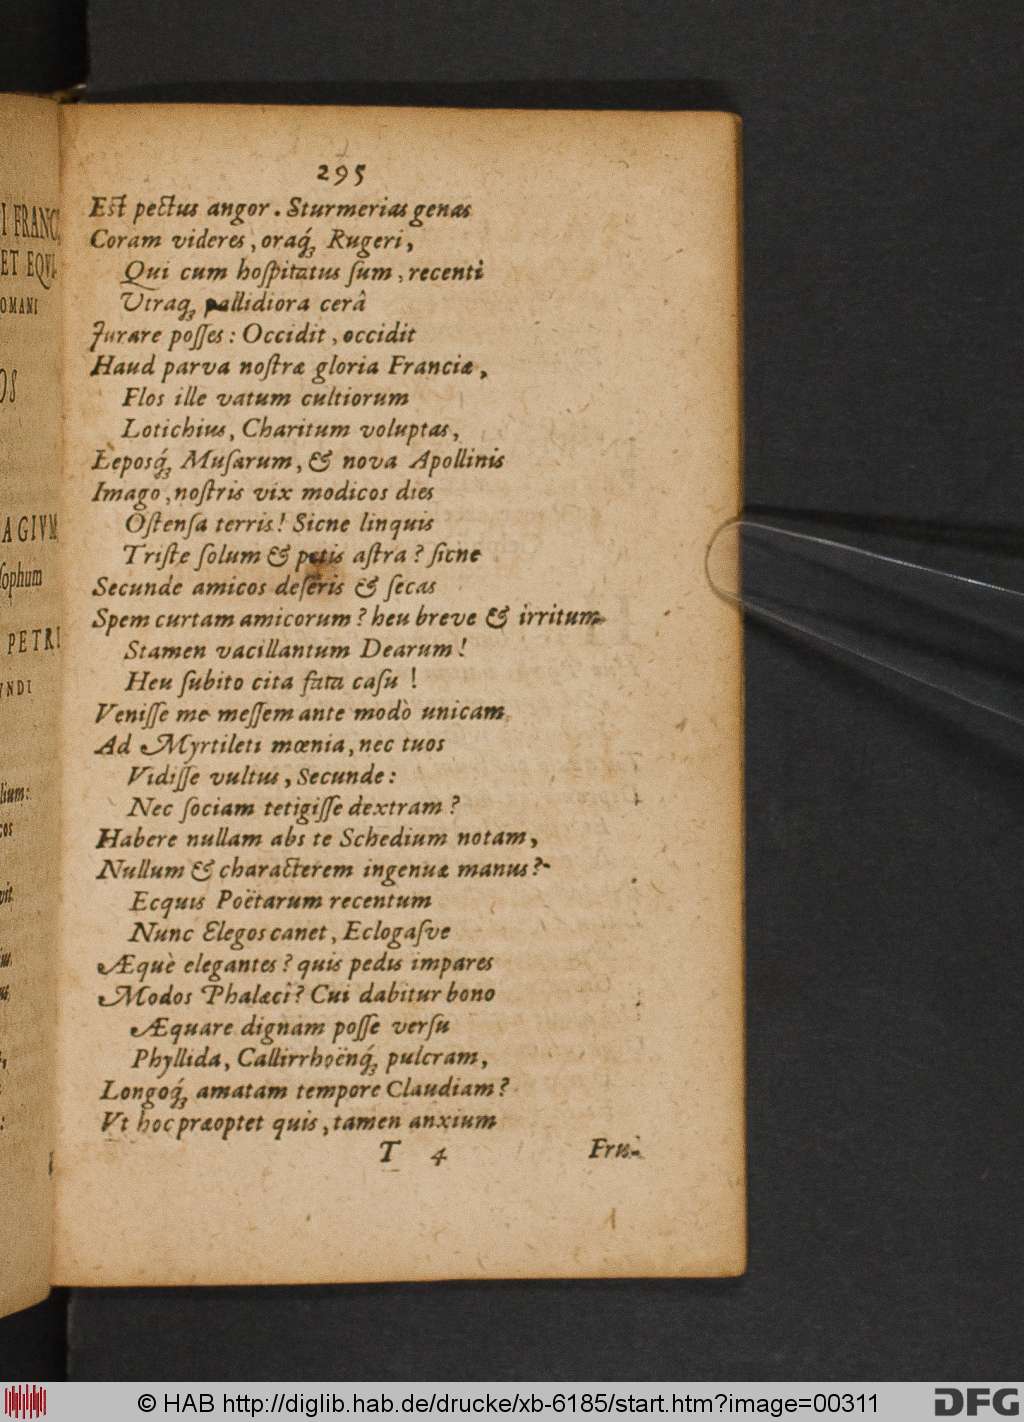 295
Est pectus angor. Sturmerias genas
Coram videres, oraq́ꝫ Rugeri,
Qui cum hoſpitatus ſum, recenti
Utraqꝫ pallidiora cerâ
Jurare poſſes: Occidit, occidit
Haud parva noſtræ gloria Franciæ,
Flos ille vatum cultiorum
Lotichius, Charitum voluptas,
Leposq́ꝫ Muſarum, & nova Apollinis
Imago, noſtris vix modicos dies
Oſtenſa terris! Sicne linquis
Triſte ſolum & petis aſtra? ſicne
Secunde amicos deſeris & ſecas
Spem curtam amicorum? heu breve & irritum
Stamen vacillantum Dearum!
Heu ſubito cita fata caſu!
Veniſſe me meſſem ante modò unicam
Ad Myrtileti mœnia, nec tuos
Vidiſſe vultus, Secunde:
Nec ſociam tetigiſſe dextram?
Habere nullam abs te Schedium notam,
Nullum & characterem ingenuæ manus?
Ecquis Poëtarum recentum
Nunc Elegos canet, Eclogaſve
Æquè elegantes? quis pedis impares
Modos Phalæci? Cui dabitur bono
Æquare dignam poſſe verſu
Phyllida, Callirrhoënq́ꝫ pulcram,
Longoq́ꝫ amatam tempore Claudiam?
Ut hoc præoptet quis, tamen anxium
T 4 Frus-
I FRANC
ET EQVI-
OMANI
OS
AGIVM
ſophum
PETRI
VNDI
lium:
cos
vit
© HAB http://diglib.hab.de/drucke/xb-6185/start.htm?image=00311
DFG